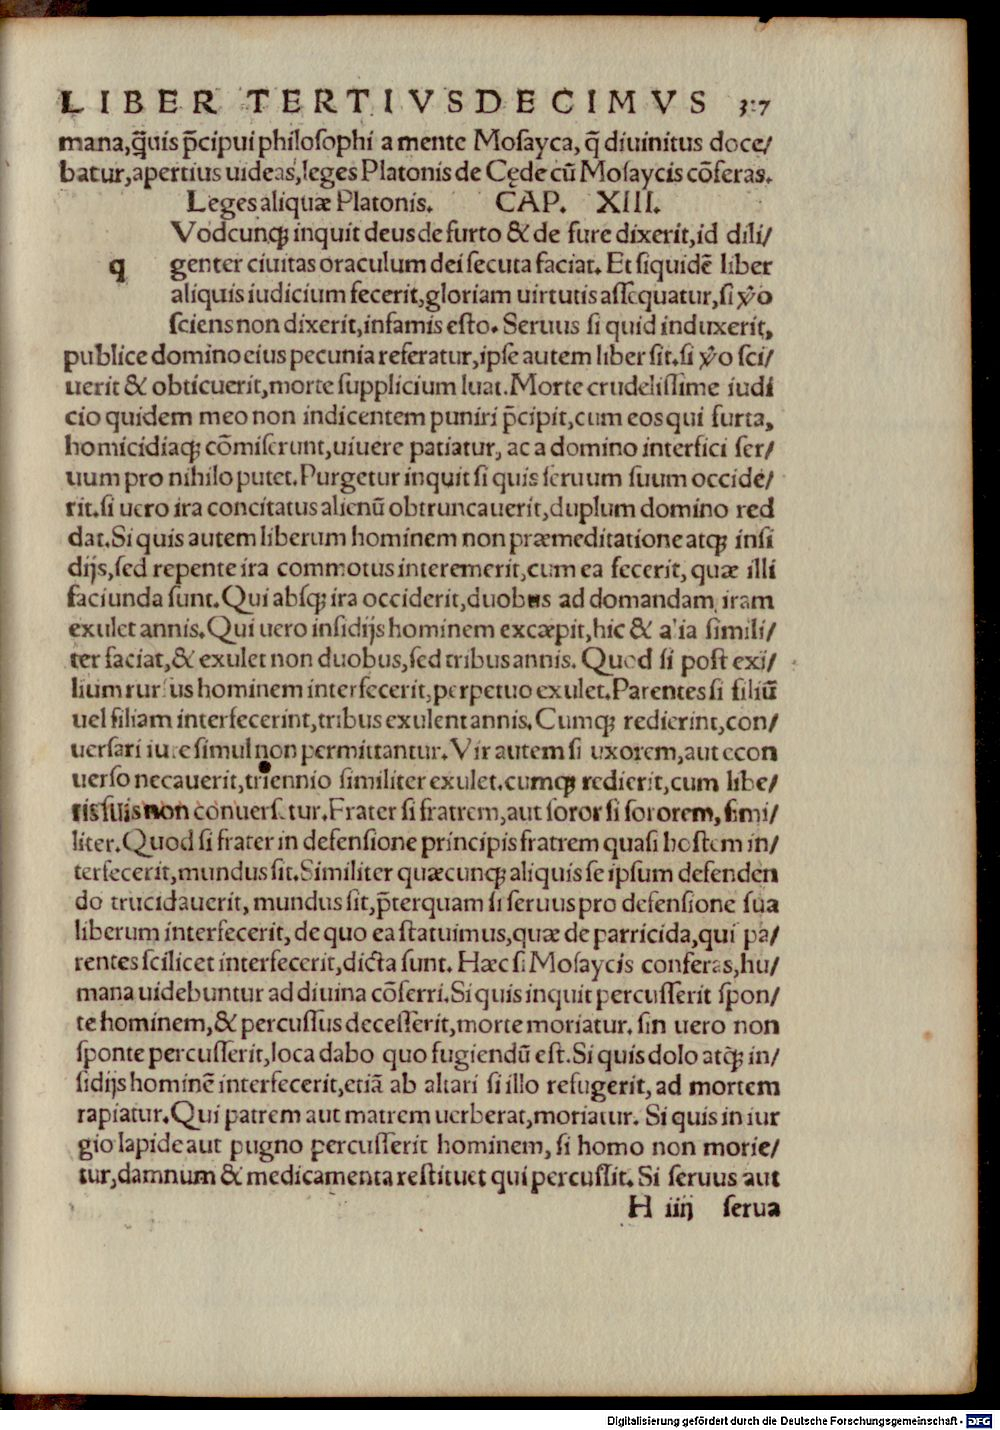 LIBER TERTIVSDECIMVS 317
mana,q̃uis p̃cipui philosophi a mente Mosayca, q̃ diuinitus doce/
batur,apertius uideas,leges Platonis de Cęde cũ Mosaycis cõferas.
Leges aliquæ Platonis. CAP. XIII.
Vodcunqꝫ inquit deus de furto & de fure dixerit,id dili/
q genter ciuitas oraculum dei secuta faciat. Et siquidẽ liber
aliquis iudicium fecerit,gloriam uirtutis assequatur,si ꝟo
sciens non dixerit,infamis esto. Seruus si quid induxerit,
publice domino eius pecunia referatur,ipse autem liber sit.si ꝟo sci/
uerit & obticuerit,morte supplicium luat.Morte crudelissime iudi
cio quidem meo non indicentem puniri p̃cipit,cum eos qui furta,
homicidiaqꝫ cõmiserunt,uiuere patiatur, ac a domino interfici ser/
uum pro nihilo putet.Purgetur inquit si quis seruum suum occide/
rit.si uero ira concitatus alienũ obtruncauerit,duplum domino red
dat.Si quis autem liberum hominem non præmeditatione atqꝫ insi
dijs,sed repente ira commotus interemerit,cum ea fecerit, quæ illi
faciunda sunt.Qui absqꝫ ira occiderit,duobus ad domandam iram
exulet annis.Qui uero insidijs hominem excæpit,hic & alia simili/
ter faciat,& exulet non duobus,sed tribus annis. Quod si post exi/
lium rursus hominem interfecerit,perpetuo exulet.Parentes si filiũ
uel filiam interfecerint,tribus exulent annis.Cumqꝫ redierint,con/
uersari iure simul non permittantur.Vir autem si uxorem,aut econ
uerso necauerit,triennio similiter exulet.cumqꝫ redierit,cum libe/
ris suis non conuersetur.Frater si fratrem,aut soror si sororem, simi/
liter.Quod si frater in defensione principis fratrem quasi hostem in/
terfecerit,mundus sit.Similiter quæcunqꝫ aliquis se ipsum defenden
do trucidauerit, mundus sit,p̃terquam si seruus pro defensione sua
liberum interfecerit, de quo ea statuimus,quæ de parricida,qui pa/
rentes scilicet interfecerit,dicta sunt. Hæc si Mosaycis conferas,hu/
mana uidebuntur ad diuina cõferri.Si quis inquit percusserit spon/
te hominem,& percussus decesserit,morte moriatur. sin uero non
sponte percusserit,loca dabo quo fugiendũ est.Si quis dolo atqꝫ in/
sidijs hominẽ interfecerit,etiã ab altari si illo refugerit, ad mortem
rapiatur.Qui patrem aut matrem uerberat,moriatur. Si quis in iur
gio lapide aut pugno percusserit hominem, si homo non morie/
tur,damnum & medicamenta restituet qui percussit. Si seruus aut
H iiij serua
Digitalisierung gefördert durch die Deutsche Forschungsgemeinschaft - DFG